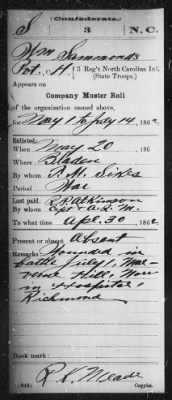 Confederate.
S 3 N.C.
Wm Simmonds
Pvt. H. 3 Reg't North Carolina Inf.
(State Troops.)
Appears on
Company Muster Roll
of the organization named above,
for May 1 to July 14, 1862
Enlisted:
When May 20 186
Where Bladen
By whom T. M. Sikes
Period War
Last paid:
By whom Capt A.Q.M.
To what time Apl. 30, 1862
Present or absent Absent
Remarks: Wounded in
battle July 1 Mal-
vern Hill. Now
in Hospital
Richmond
Book mark:
R. K. Meade
(642) Copyist.